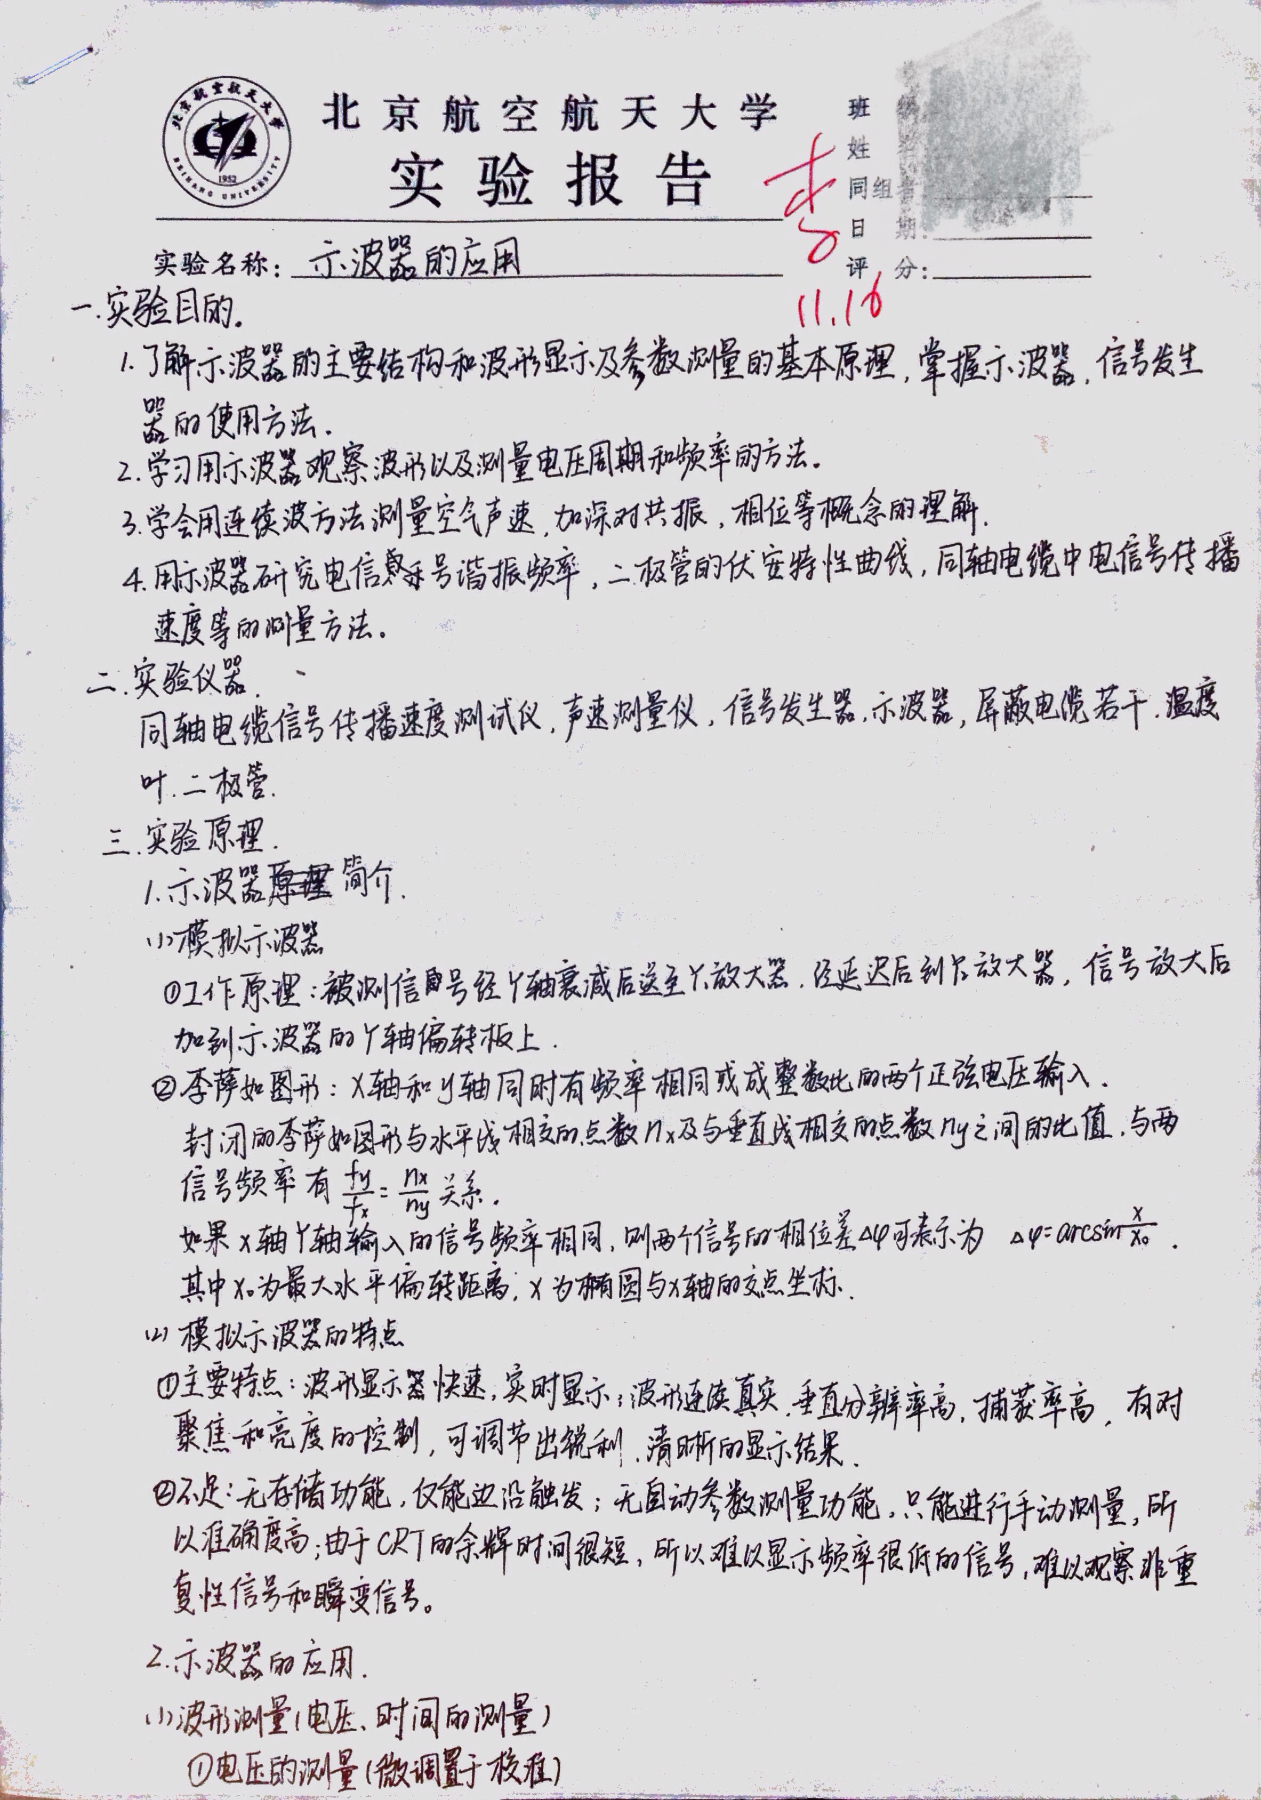 北京航空航天大学
实验报告
北京航空航天大学
BEIHANG UNIVERSITY
1952
班 级
姓 名
同组者
日 期:
评 分:
李
11.16
实验名称: 示波器的应用
一.实验目的.
1.了解示波器的主要结构和波形显示及参数测量的基本原理,掌握示波器,信号发生
器的使用方法.
2.学习用示波器观察波形以及测量电压周期和频率的方法.
3.学会用连续波方法测量空气声速,加深对共振,相位等概念的理解.
4.用示波器研究电信号谐振频率,二极管的伏安特性曲线,同轴电缆中电信号传播
速度等的测量方法.
二.实验仪器.
同轴电缆信号传播速度测试仪,声速测量仪,信号发生器.示波器,屏蔽电缆若干.温度
叶.二极管.
三.实验原理.
1.示波器原理简介.
(1)模拟示波器
①工作原理:被测信号经Y轴衰减后送至Y₁放大器.经延迟后到Y₂放大器,信号放大后
加到示波器的Y轴偏转板上.
②李萨如图形:X轴和y轴同时有频率相同或成整数比的两个正弦电压输入.
封闭的李萨如图形与水平线相交的点数nx及与垂直线相交的点数ny之间的比值,与两
信号频率有 fy/fx=nx/ny 关系.
如果X轴Y轴输入的信号频率相同,则两个信号的相位差Δφ可表示为 Δφ=arcsin x/x₀ .
其中x₀为最大水平偏转距离,x为椭圆与x轴的交点坐标.
(2)模拟示波器的特点
①主要特点:波形显示快速,实时显示;波形连续真实.垂直分辨率高,捕获率高,有对
聚焦和亮度的控制,可调节出锐利.清晰的显示结果.
②不足:无存储功能,仅能边沿触发;无自动参数测量功能,只能进行手动测量,所
以准确度高;由于CRT的余辉时间很短,所以难以显示频率很低的信号,难以观察非重
复性信号和瞬变信号。
2.示波器的应用.
(1)波形测量(电压、时间的测量)
①电压的测量(微调置于校准)